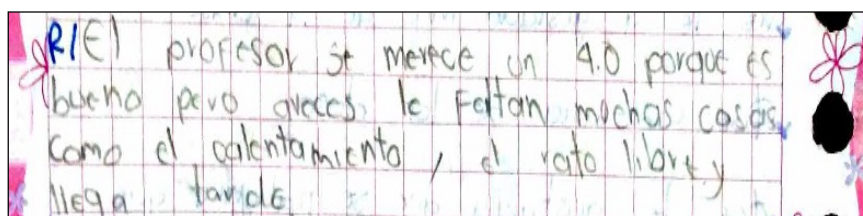 R/El profesor se merece un 4.0 porque es
bueno pero aveces le Faltan muchas cosas
como el calentamiento, el rato libre y
llega tarde